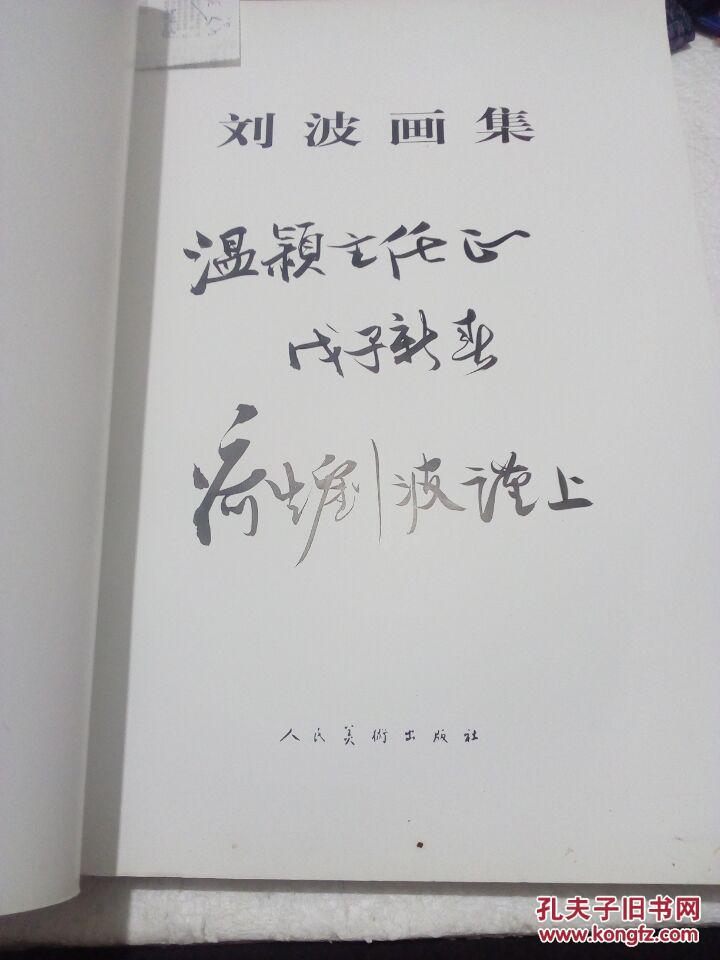 刘波画集
温颖主任正
戊子新春
刘波谨上
人民美術出版社
孔夫子旧书网
www.kongfz.com